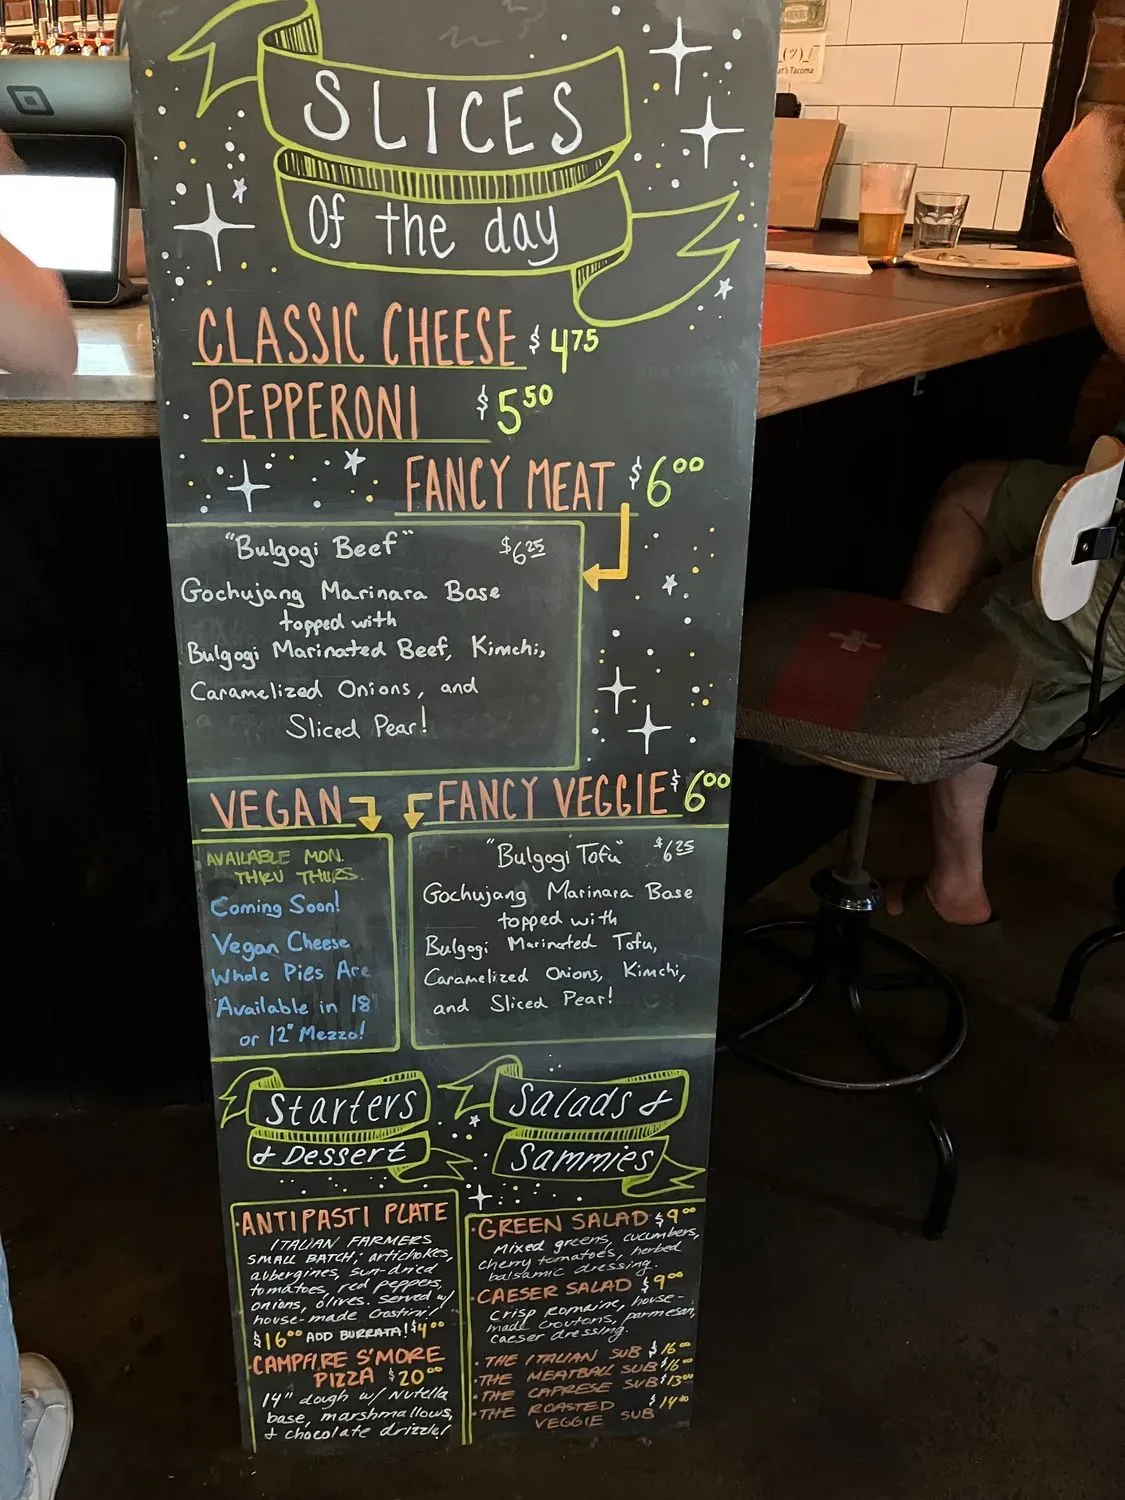 SLICES
of the day
CLASSIC CHEESE $4.75
PEPPERONI $5.50
FANCY MEAT $6.00
"Bulgogi Beef" $6.25
Gochujang Marinara Base
topped with
Bulgogi Marinated Beef, Kimchi,
Caramelized Onions, and
Sliced Pear!
VEGAN
AVAILABLE MON.
THRU THURS.
Coming Soon!
Vegan Cheese
Whole Pies Are
Available in 18"
or 12" Mezzo!
FANCY VEGGIE $6.00
"Bulgogi Tofu" $6.25
Gochujang Marinara Base
topped with
Bulgogi Marinated Tofu,
Caramelized Onions, Kimchi,
and Sliced Pear!
Starters
& Dessert
·ANTIPASTI PLATE
ITALIAN FARMERS
SMALL BATCH; artichokes,
aubergines, sun-dried
tomatoes, red peppers,
onions, olives. served w/
house-made Crostini!
$16.00 ADD BURRATA! $4.00
·CAMPFIRE S'MORE
PIZZA $20.00
14" dough w/ Nutella
base, marshmallows,
& chocolate drizzle!
Salads &
Sammies
·GREEN SALAD $9.00
Mixed greens, cucumbers,
cherry tomatoes, herbed
balsamic dressing.
·CAESER SALAD $9.00
crisp romaine, house-
made croutons, parmesan,
caeser dressing.
·THE ITALIAN SUB $16.00
·THE MEATBALL SUB $16.00
·THE CAPRESE SUB $13.00
·THE ROASTED $14.00
VEGGIE SUB